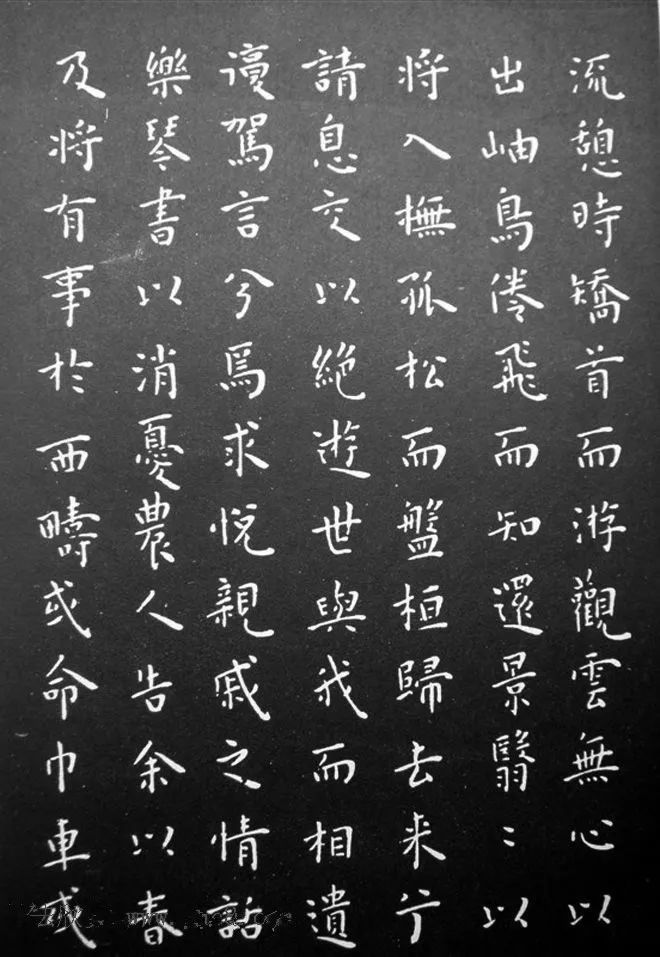 流憩時矯首而游觀雲無心以
出岫鳥倦飛而知還景翳〻以
将入撫孤松而盤桓歸去来兮
請息交以絶遊世與我而相遺
駕言兮焉求悅親戚之情話
樂琴書以消憂農人告余以春
及将有事於西疇或命巾車或